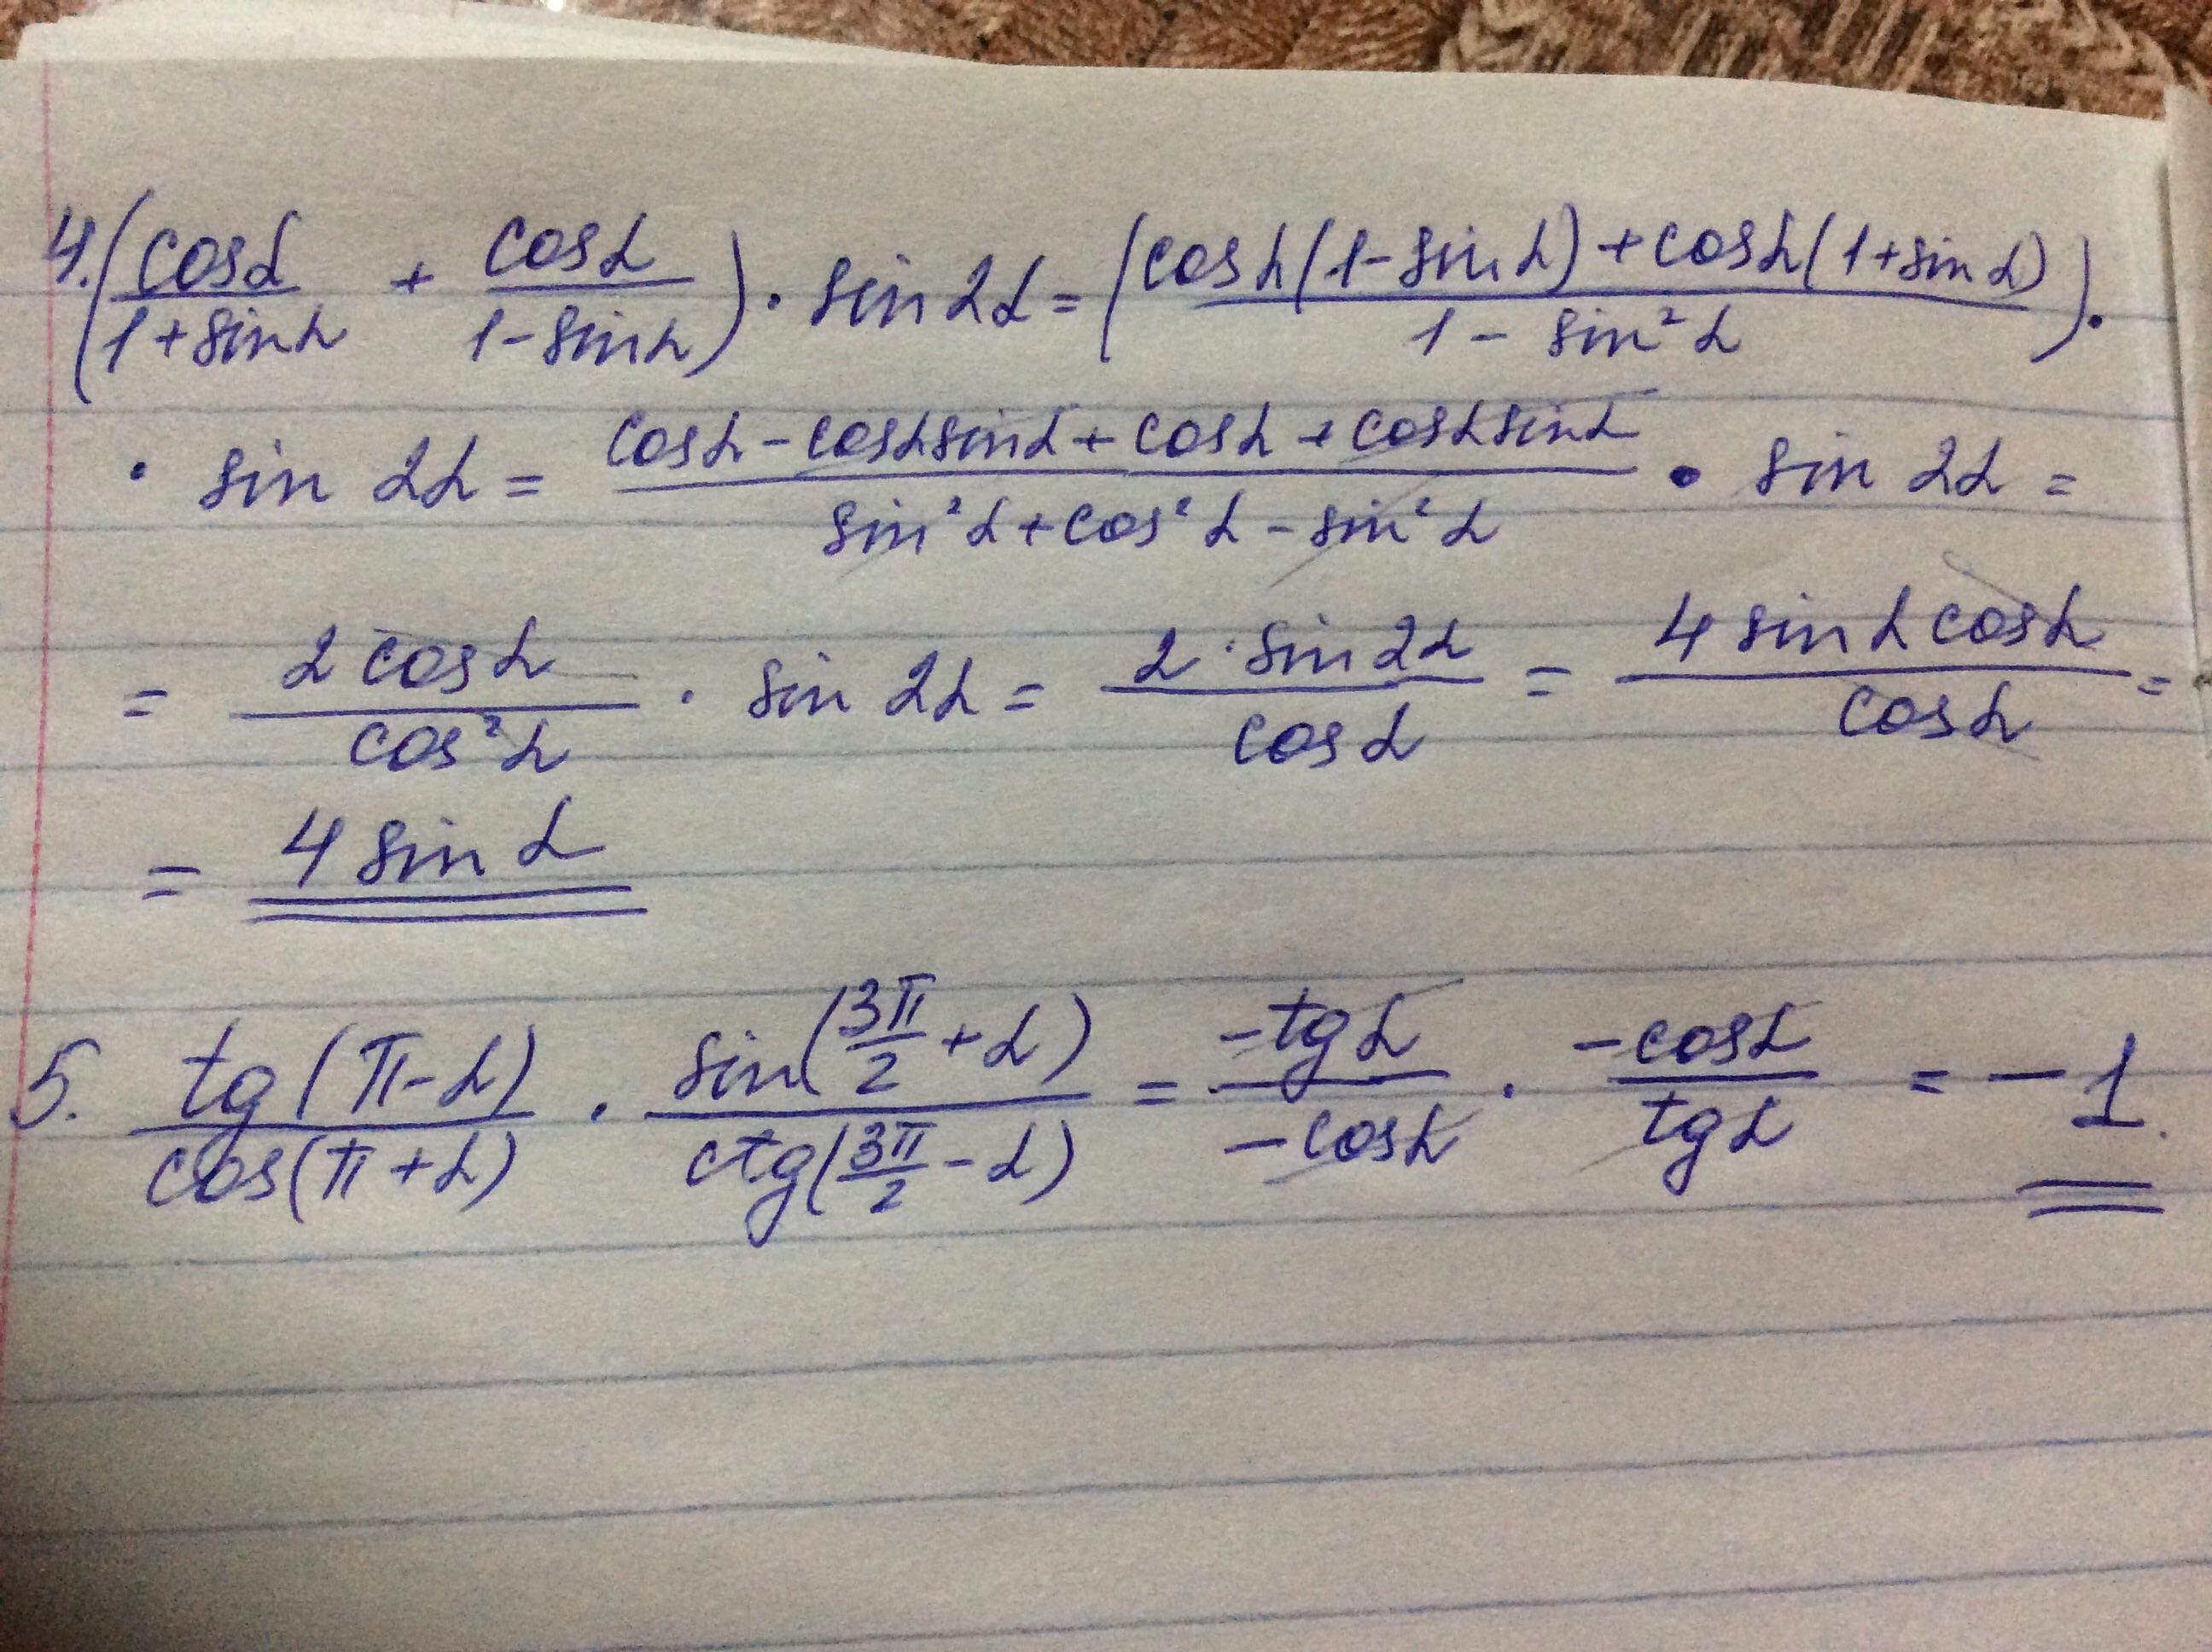 4. (cosα/(1+sinα) + cosα/(1-sinα)) · sin2α = (cosα(1-sinα)+cosα(1+sinα)/(1-sin²α)) ·
· sin 2α = (cosα-cosαsinα+cosα+cosαsinα)/(sin²α+cos²α-sin²α) · sin 2α =
= 2cosα/cos²α · sin 2α = 2·sin2α/cosα = 4sinαcosα/cosα =
= 4 sinα
5. tg(π-α)/cos(π+α) · sin(3π/2+α)/ctg(3π/2-α) = -tgα/-cosα · -cosα/tgα = -1.